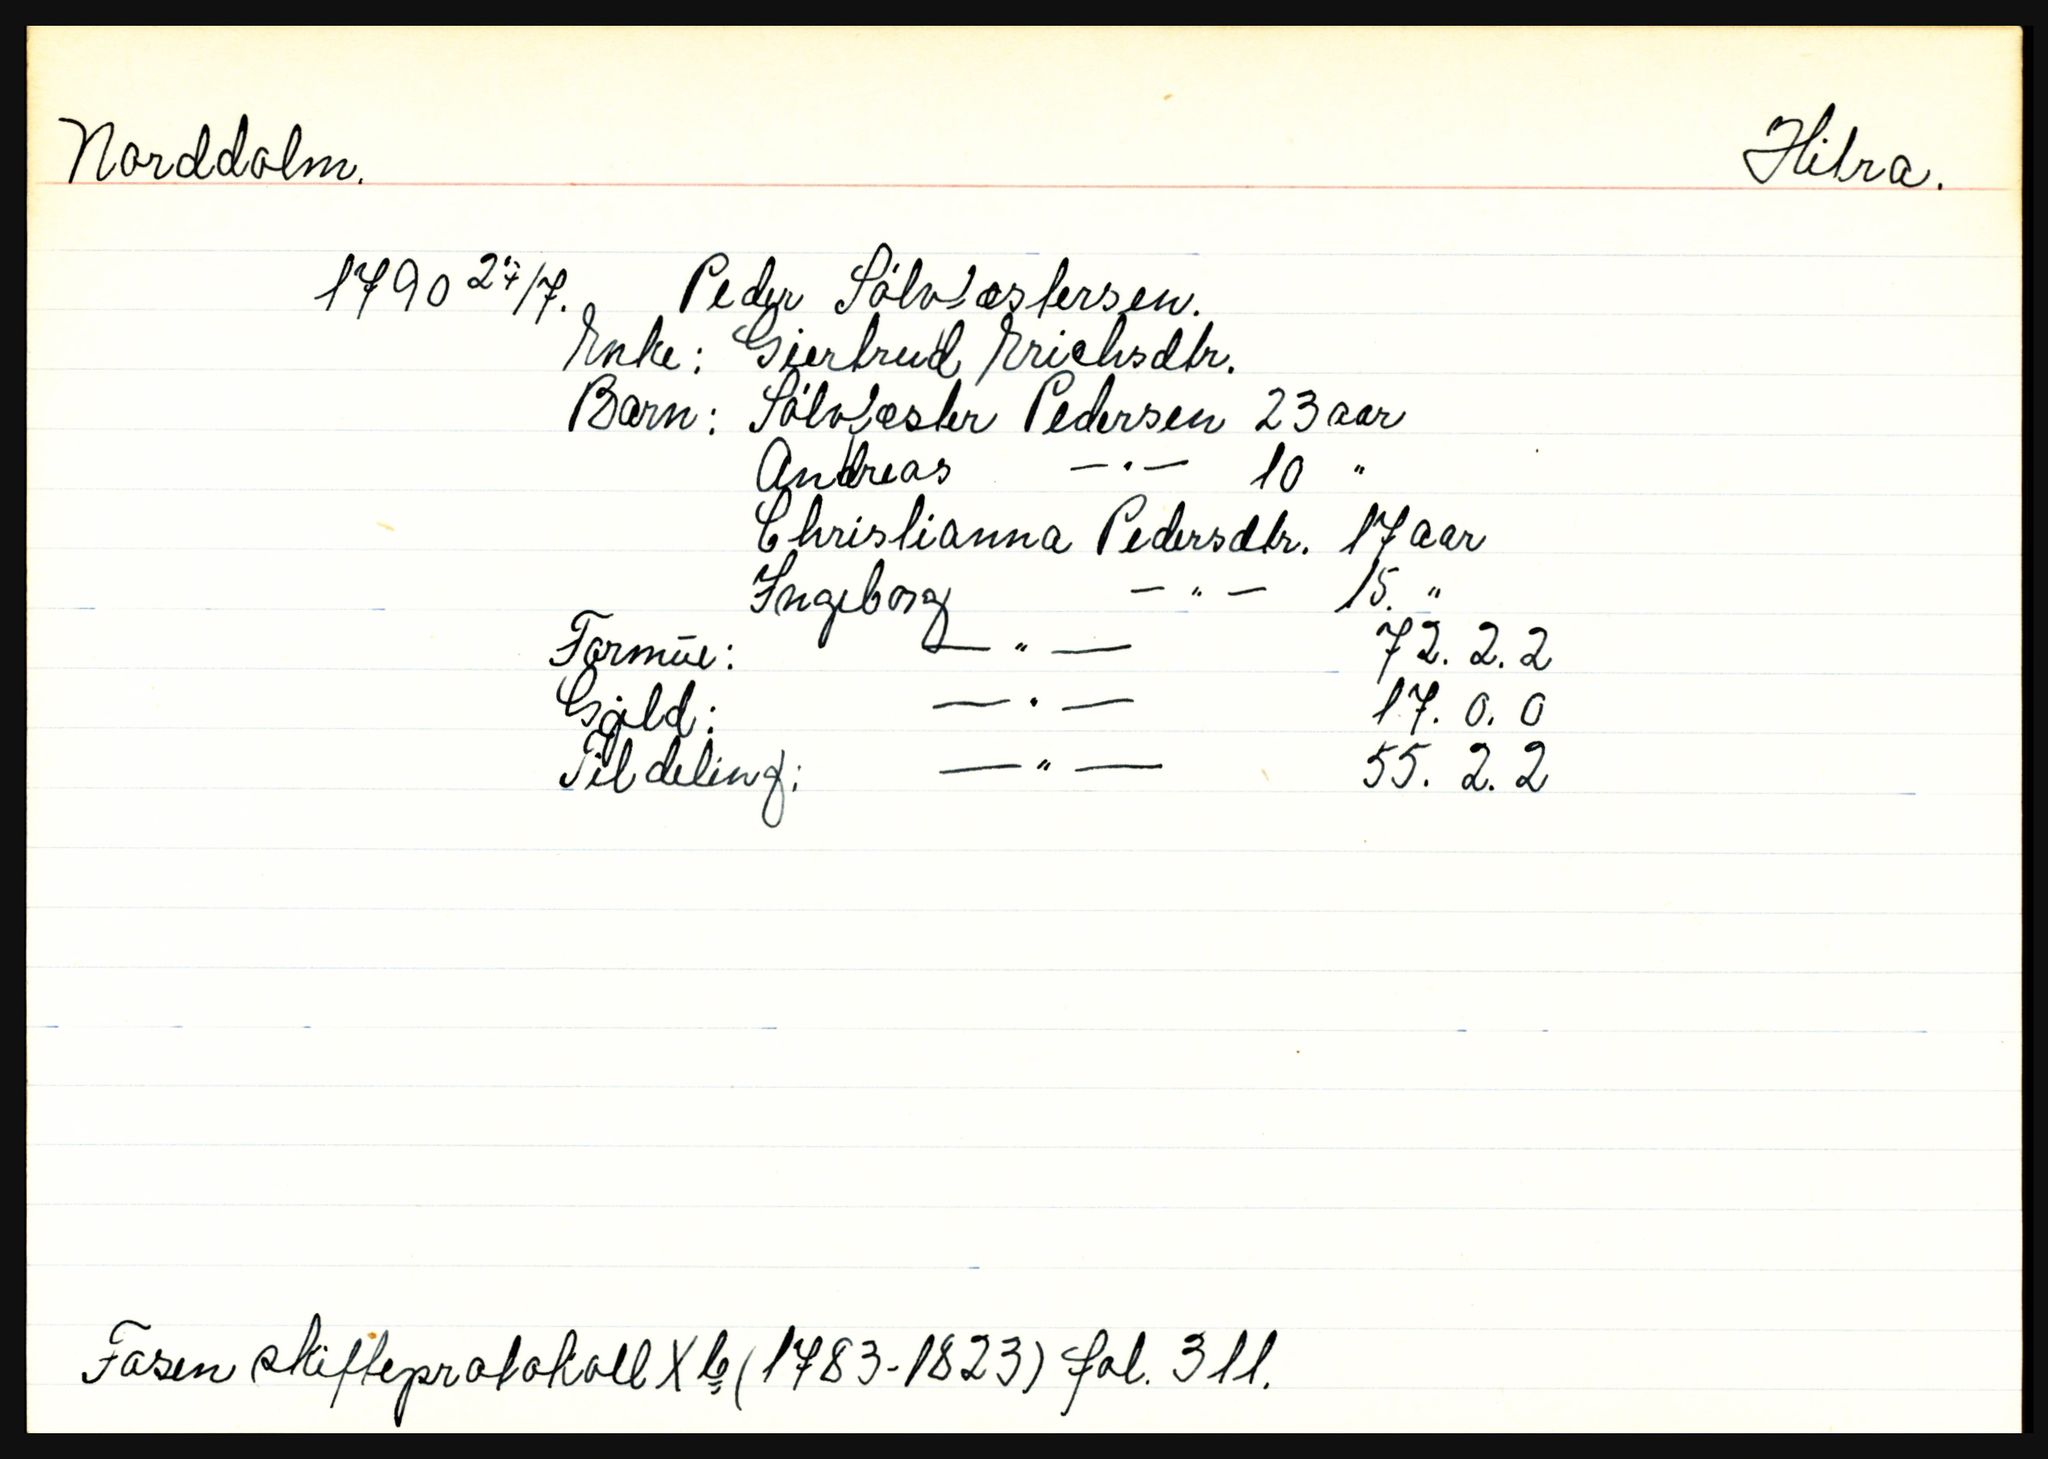 Norddolm. Hitra.
1790 27/7. Peder Sølvæstersen.
Enke: Giertrud Erichsdtr.
Barn: Sølvæster Pedersen 23 aar
Andreas —"— 10 "
Christianna Pedersdtr. 17 aar
Ingeborg —"— 15. "
Formūe: —"— 72. 2. 2
Gjæld: —"— 17. 0. 0
Til deling: —"— 55. 2. 2
Fosen skifteprotokoll X b (1783-1823) fol. 311.